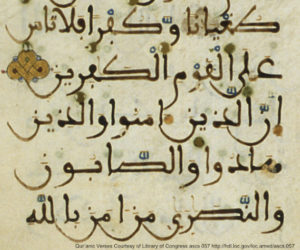 طغيانا وكفرا فلا تاس
على القوم الكفرين
ان الذين امنوا والذين
هادوا والصابون
والنصرى من امن بالله
Qur'anic Verses Courtesy of Library of Congress ascs 057 http://hdl.loc.gov/loc.amed/ascs.057